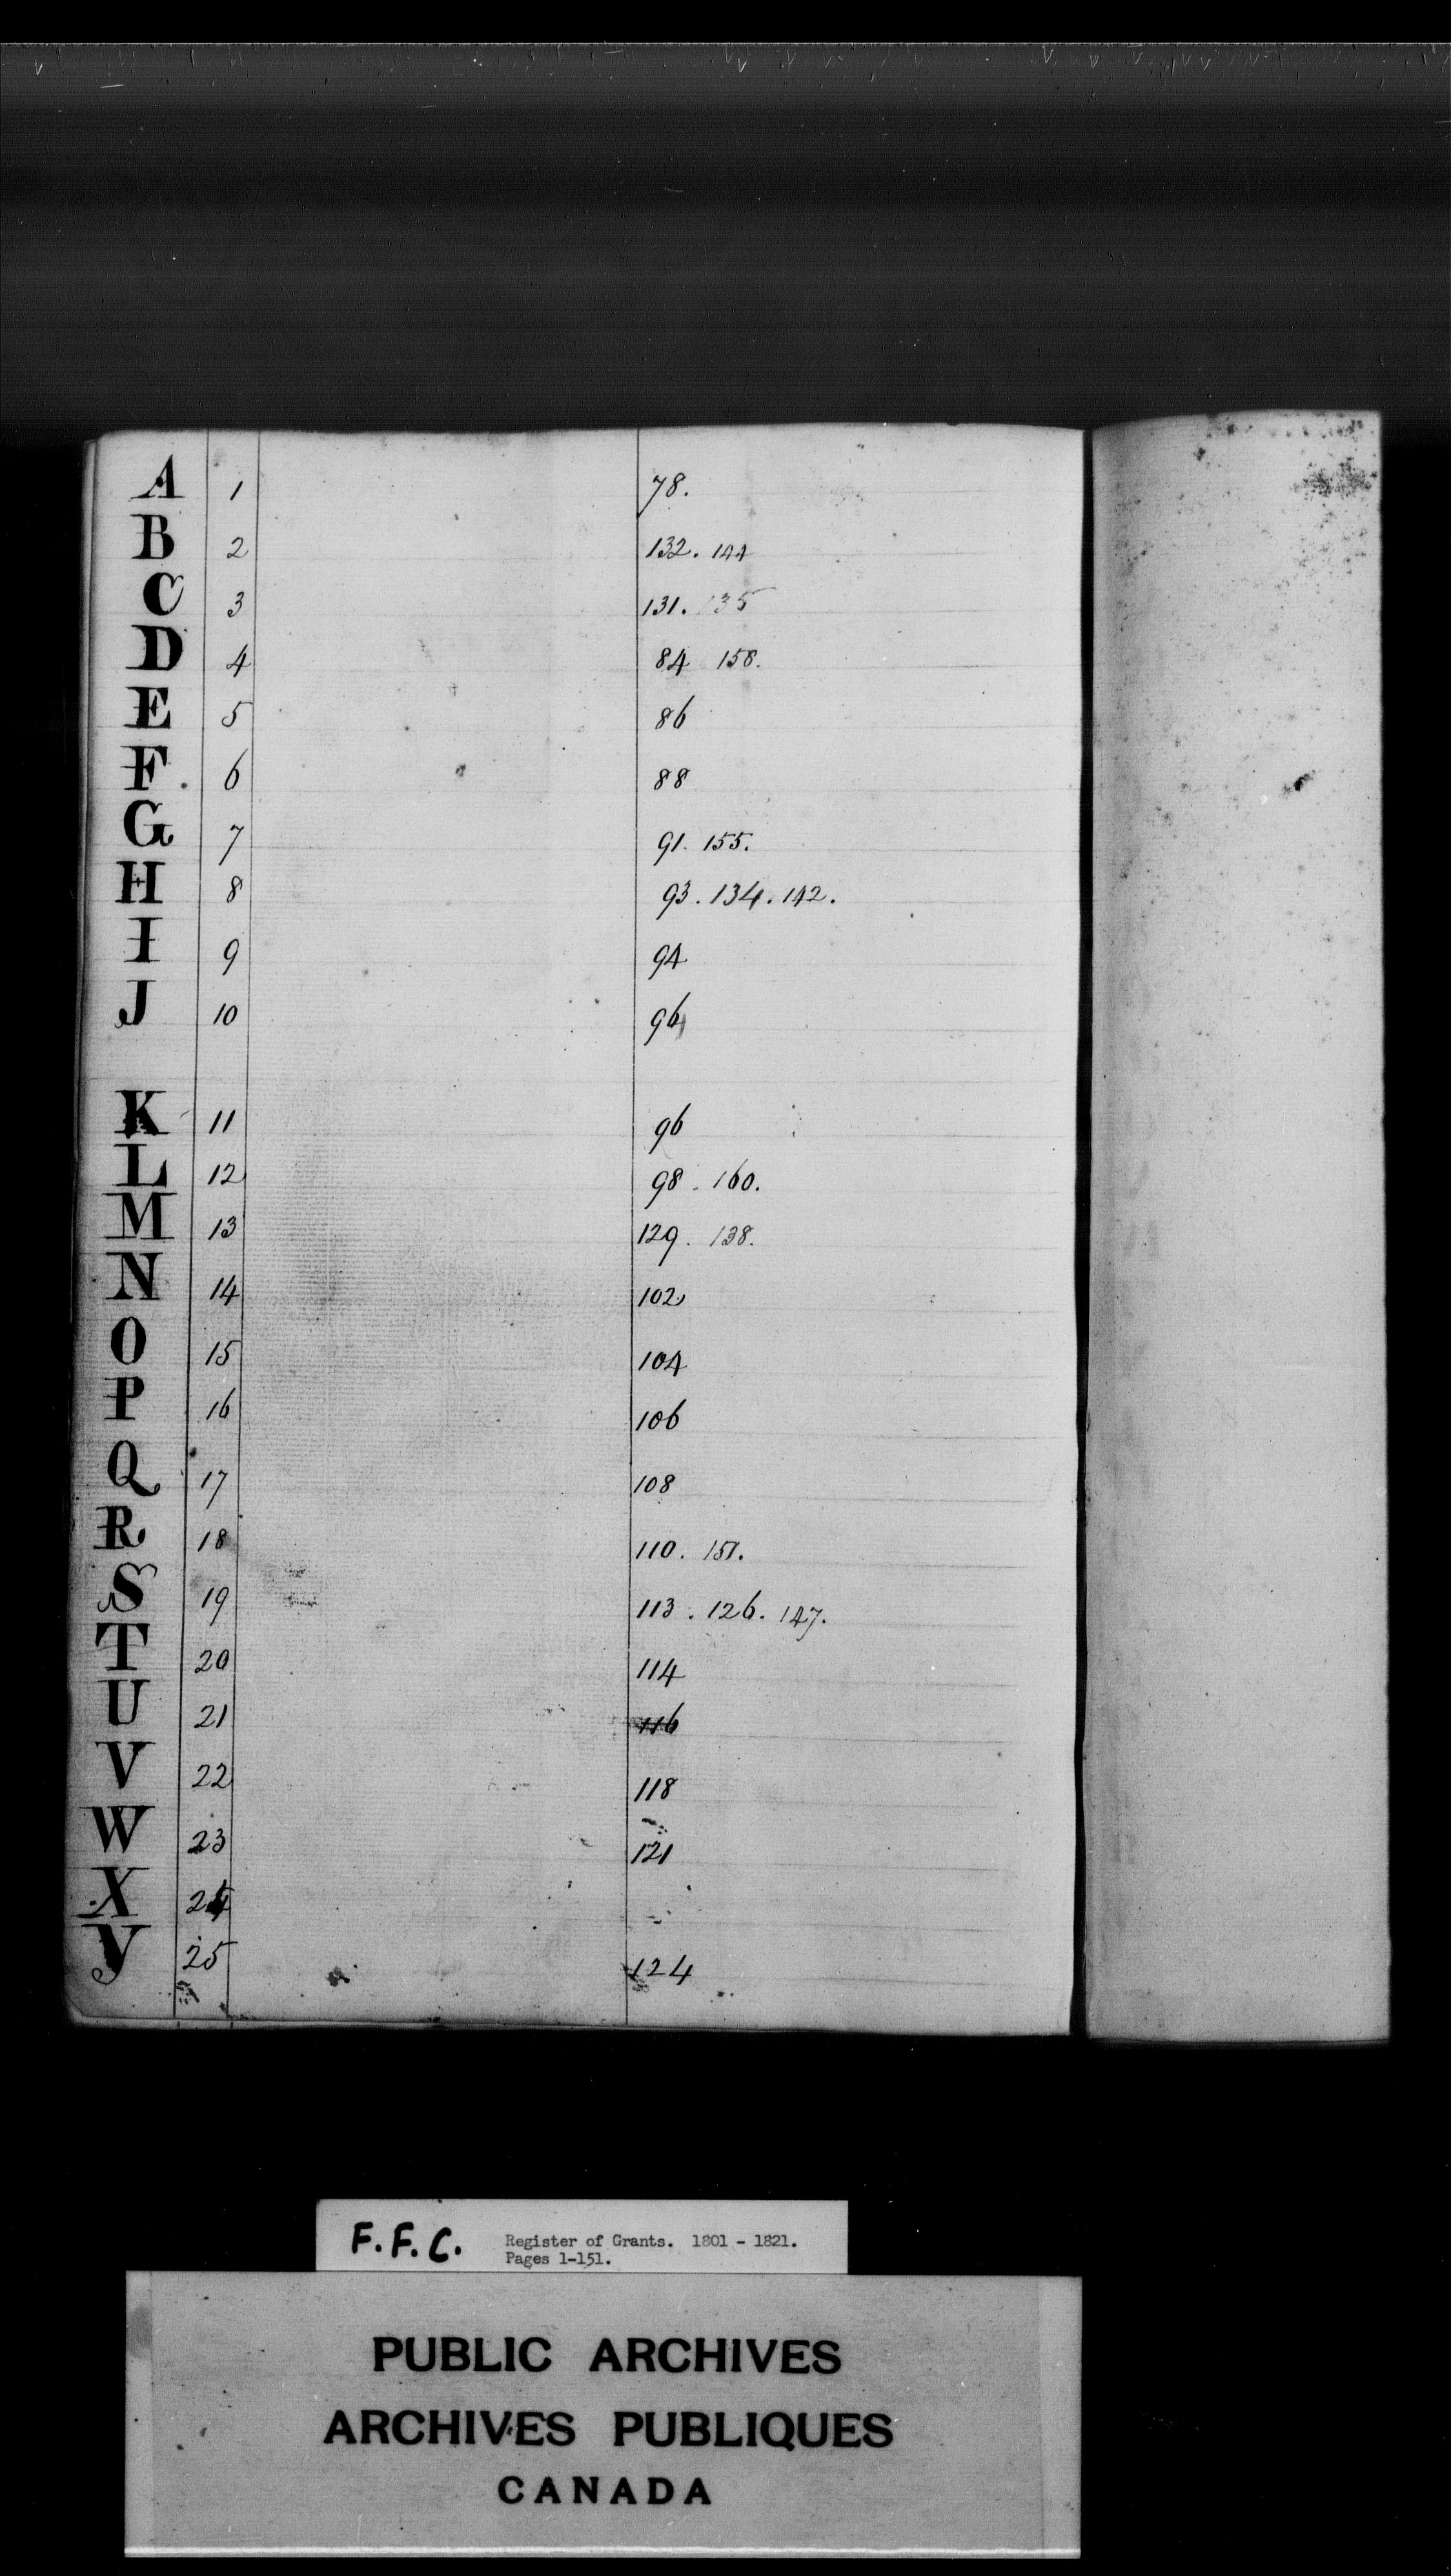 A 1 78.
B 2 132. 144
C 3 131. 135
D 4 84 158.
E 5 86
F 6 88
G 7 91. 155.
H 8 93. 134. 142.
I 9 94
J 10 96
K 11 96
L 12 98. 160.
M 13 129. 138.
N 14 102
O 15 104
P 16 106
Q 17 108
R 18 110. 151.
S 19 113. 126. 147.
T 20 114
U 21 116
V 22 118
W 23 121
X 24
Y 25 124
F.F.C. Register of Grants. 1801 - 1821.
Pages 1-151.
PUBLIC ARCHIVES
ARCHIVES PUBLIQUES
CANADA